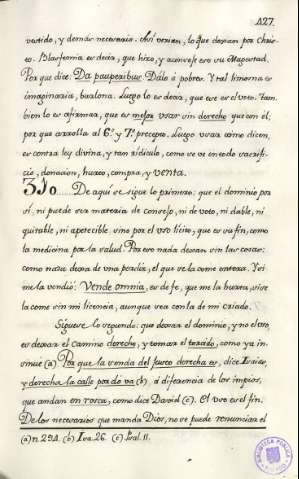 427.
vestido, y demás necesario. Así verían, lo que dexan por Chris-
to. Blasfemia es decir, que hizo, y aconsejó eso su Magestad.
Porque dice: Da pauperibus: Dálo á pobres. Y tal limosna es
imaginaria, burlona. Luego lo es decir, que ese es el voto. Tam-
bien lo es afirmar, que es mejor usar sin derecho que con el,
por que arrolla al 6º. y 7º. precepto. Luego usar como dicen,
es contra ley divina, y tan ridículo, como se ve en todo sacrifi-
cio, donacion, hurto, compra, y venta.
310..... De aquí se sigue lo primero: que el dominio por
sí, ni puede ser materia de consejo, ni de voto, ni dable, ni
quitable, ni apetecible sino por el uso lícito, que es su fin, como
la medicina por la salud. Por eso nada dexan sin las cosas:
como nada dexa de una perdíz, el que se la come entera. Y si
me la vendió: Vende omnia, es de fe, que me la hurta, si se
la come sin mi licencia, aunque sea con la de mi criado.
Síguese lo segundo: que dexar el dominio, y no el uso,
es dexar el camino derecho, y tomar el torcido, como ya in-
sinué (a) Por que la senda del justo derecha es, dice Isaías,
y derecha la calle por do va (b) á diferencia de los impíos,
que andan en rosca, como dice David (c). El uso es el fin.
De los necesarios que manda Dios, no se puede renunciar el
(a) n. 294. (b) Isa. 26. (c) Psal. 11.